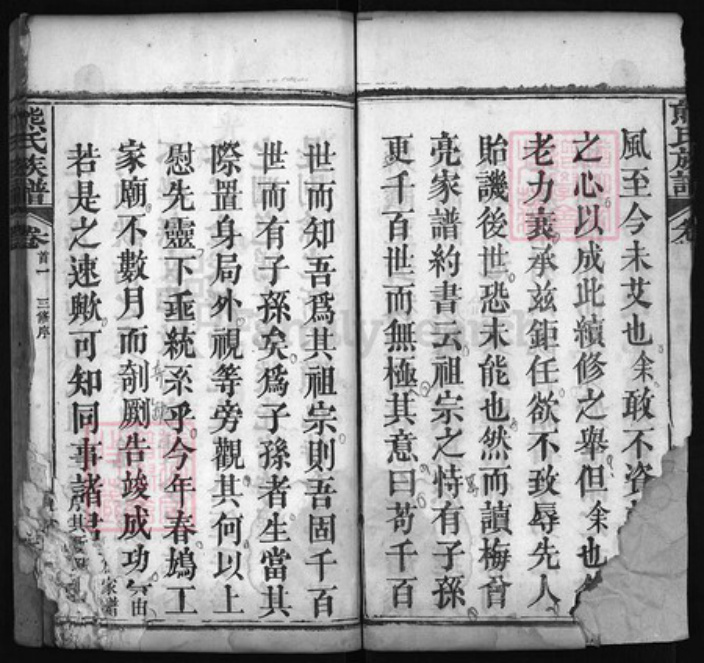 熊氏族譜
風至今未艾也余敢不資
之心以成此續修之舉但余也
老力衰承兹鉅任欲不致辱先人
貽譏後世恐未能也然而讀梅曾
亮家譜約書云祖宗之恃有子孫
更千百世而無極其意曰苟千百
世而知吾爲其祖宗則吾固千百
世而有子孫矣爲子孫者生當其
際置身局外視等旁觀其何以上
慰先靈下垂統系乎今年春鳩工
家廟不數月而剞劂告竣成功
若是之速歟可知同事諸君
熊氏族譜
卷首一
三修序
FamilySearch